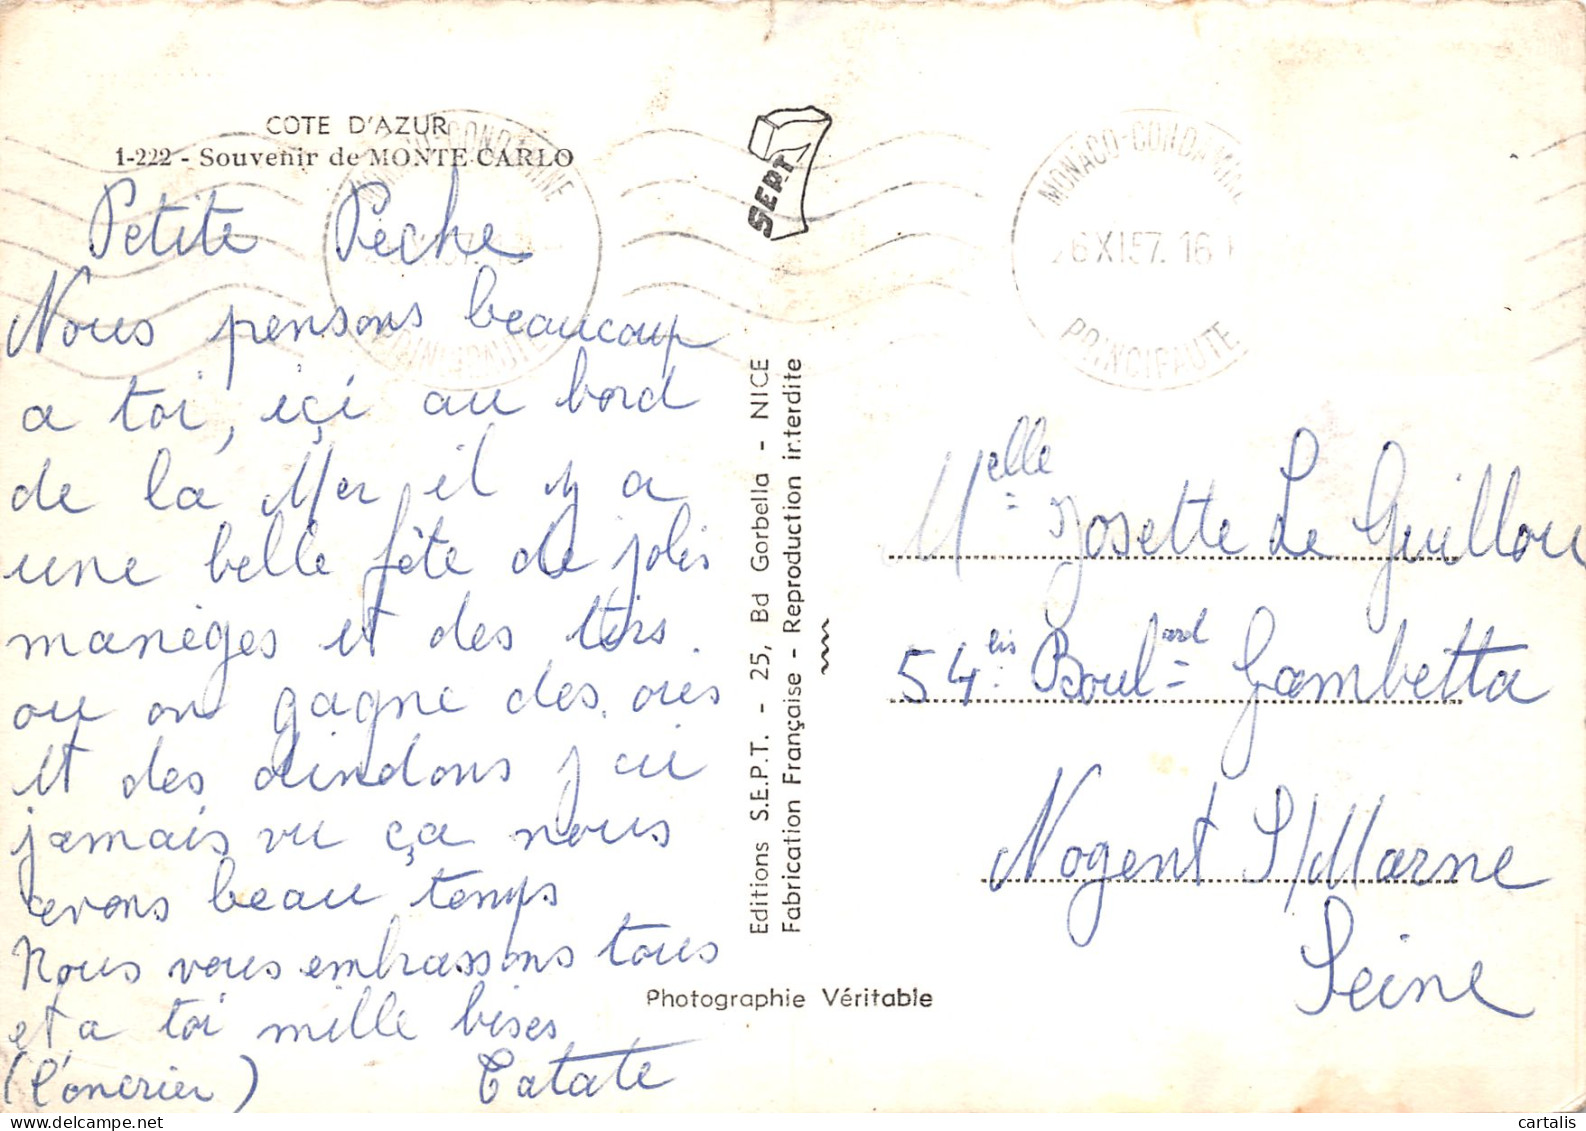 COTE D'AZUR
1-222 - Souvenir de MONTE-CARLO
Petite Pêche
Nous pensons beaucoup
a toi, içi au bord
de la Mer il y a
une belle fête de jolis
manèges et des tirs.
ou on gagne des oies
et des dindons j'ai
jamais vu ça nous
avons beau temps
Nous vous embrassons tous
et a toi mille bises
Tatate
SEPT
Editions S.E.P.T. - 25, Bd Gorbella - NICE
Fabrication Française - Reproduction interdite
Photographie Véritable
MONACO-CONDAMINE
6 XI 57. 16
PRINCIPAUTE
Melle Josette Le Guillou
54 bis Boulard Gambetta
Nogent S/Marne
Seine
cartalis